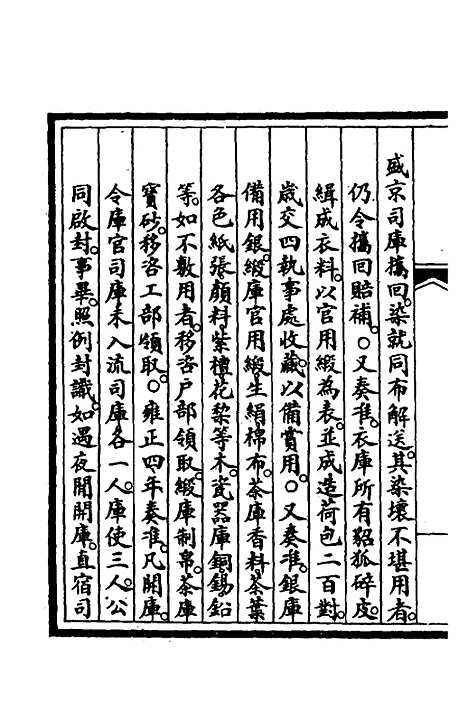 盛京司庫攜回。染就同布解送。其染壞不堪用者。
仍令攜回賠補。○又奏准。衣庫所有貂狐碎皮。
緝成衣料。以官用緞為表。並成造荷包二百對。
歲交四執事處收藏。以備賞用。○又奏准。銀庫
備用銀。緞庫官用緞。生絹棉布。茶庫香料。茶葉
各色紙張顏料。紫檀花棃等木。瓷器庫銅錫鉛
等。如不敷用者。移咨戶部領取。緞庫制帛。茶庫
寶砂。移咨工部領取。○雍正四年奏准。凡開庫。
令庫官司庫未入流司庫各一人。庫使三人。公
同啟封。事畢。照例封識。如遇夜間開庫。直宿司